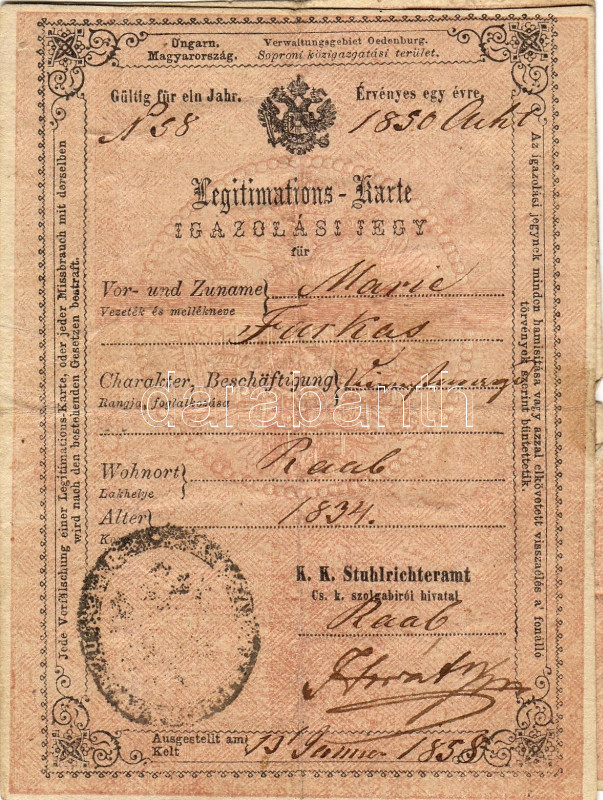 Ungarn. Verwaltungsgebiet Oedenburg.
Magyarország. Soproni közigazgatási terület.
Gültig für ein Jahr. Érvényes egy évre.
N 58 1850
Legitimations-Karte
IGAZOLÁSI JEGY
für
Vor- und Zuname Marie
Vezeték és mellékneve
Farkas
Charakter, Beschäftigung
Rangja, foglalkozása
darabanth
Wohnort Raab
Lakhelye
Alter 1834.
K. K. Stuhlrichteramt
Cs. k. szolgabirói hivatal
Raab
Ausgestellt am 13 1858
Kelt
Jede Verfälschung einer Legitimations-Karte, oder jeder Missbrauch mit derselben
wird nach den bestehenden Gesetzen bestraft.
Az igazolási jegynek minden hamisitása vagy azzal elkövetett visszaélés a' fonálló
törvények szerint büntettetik.